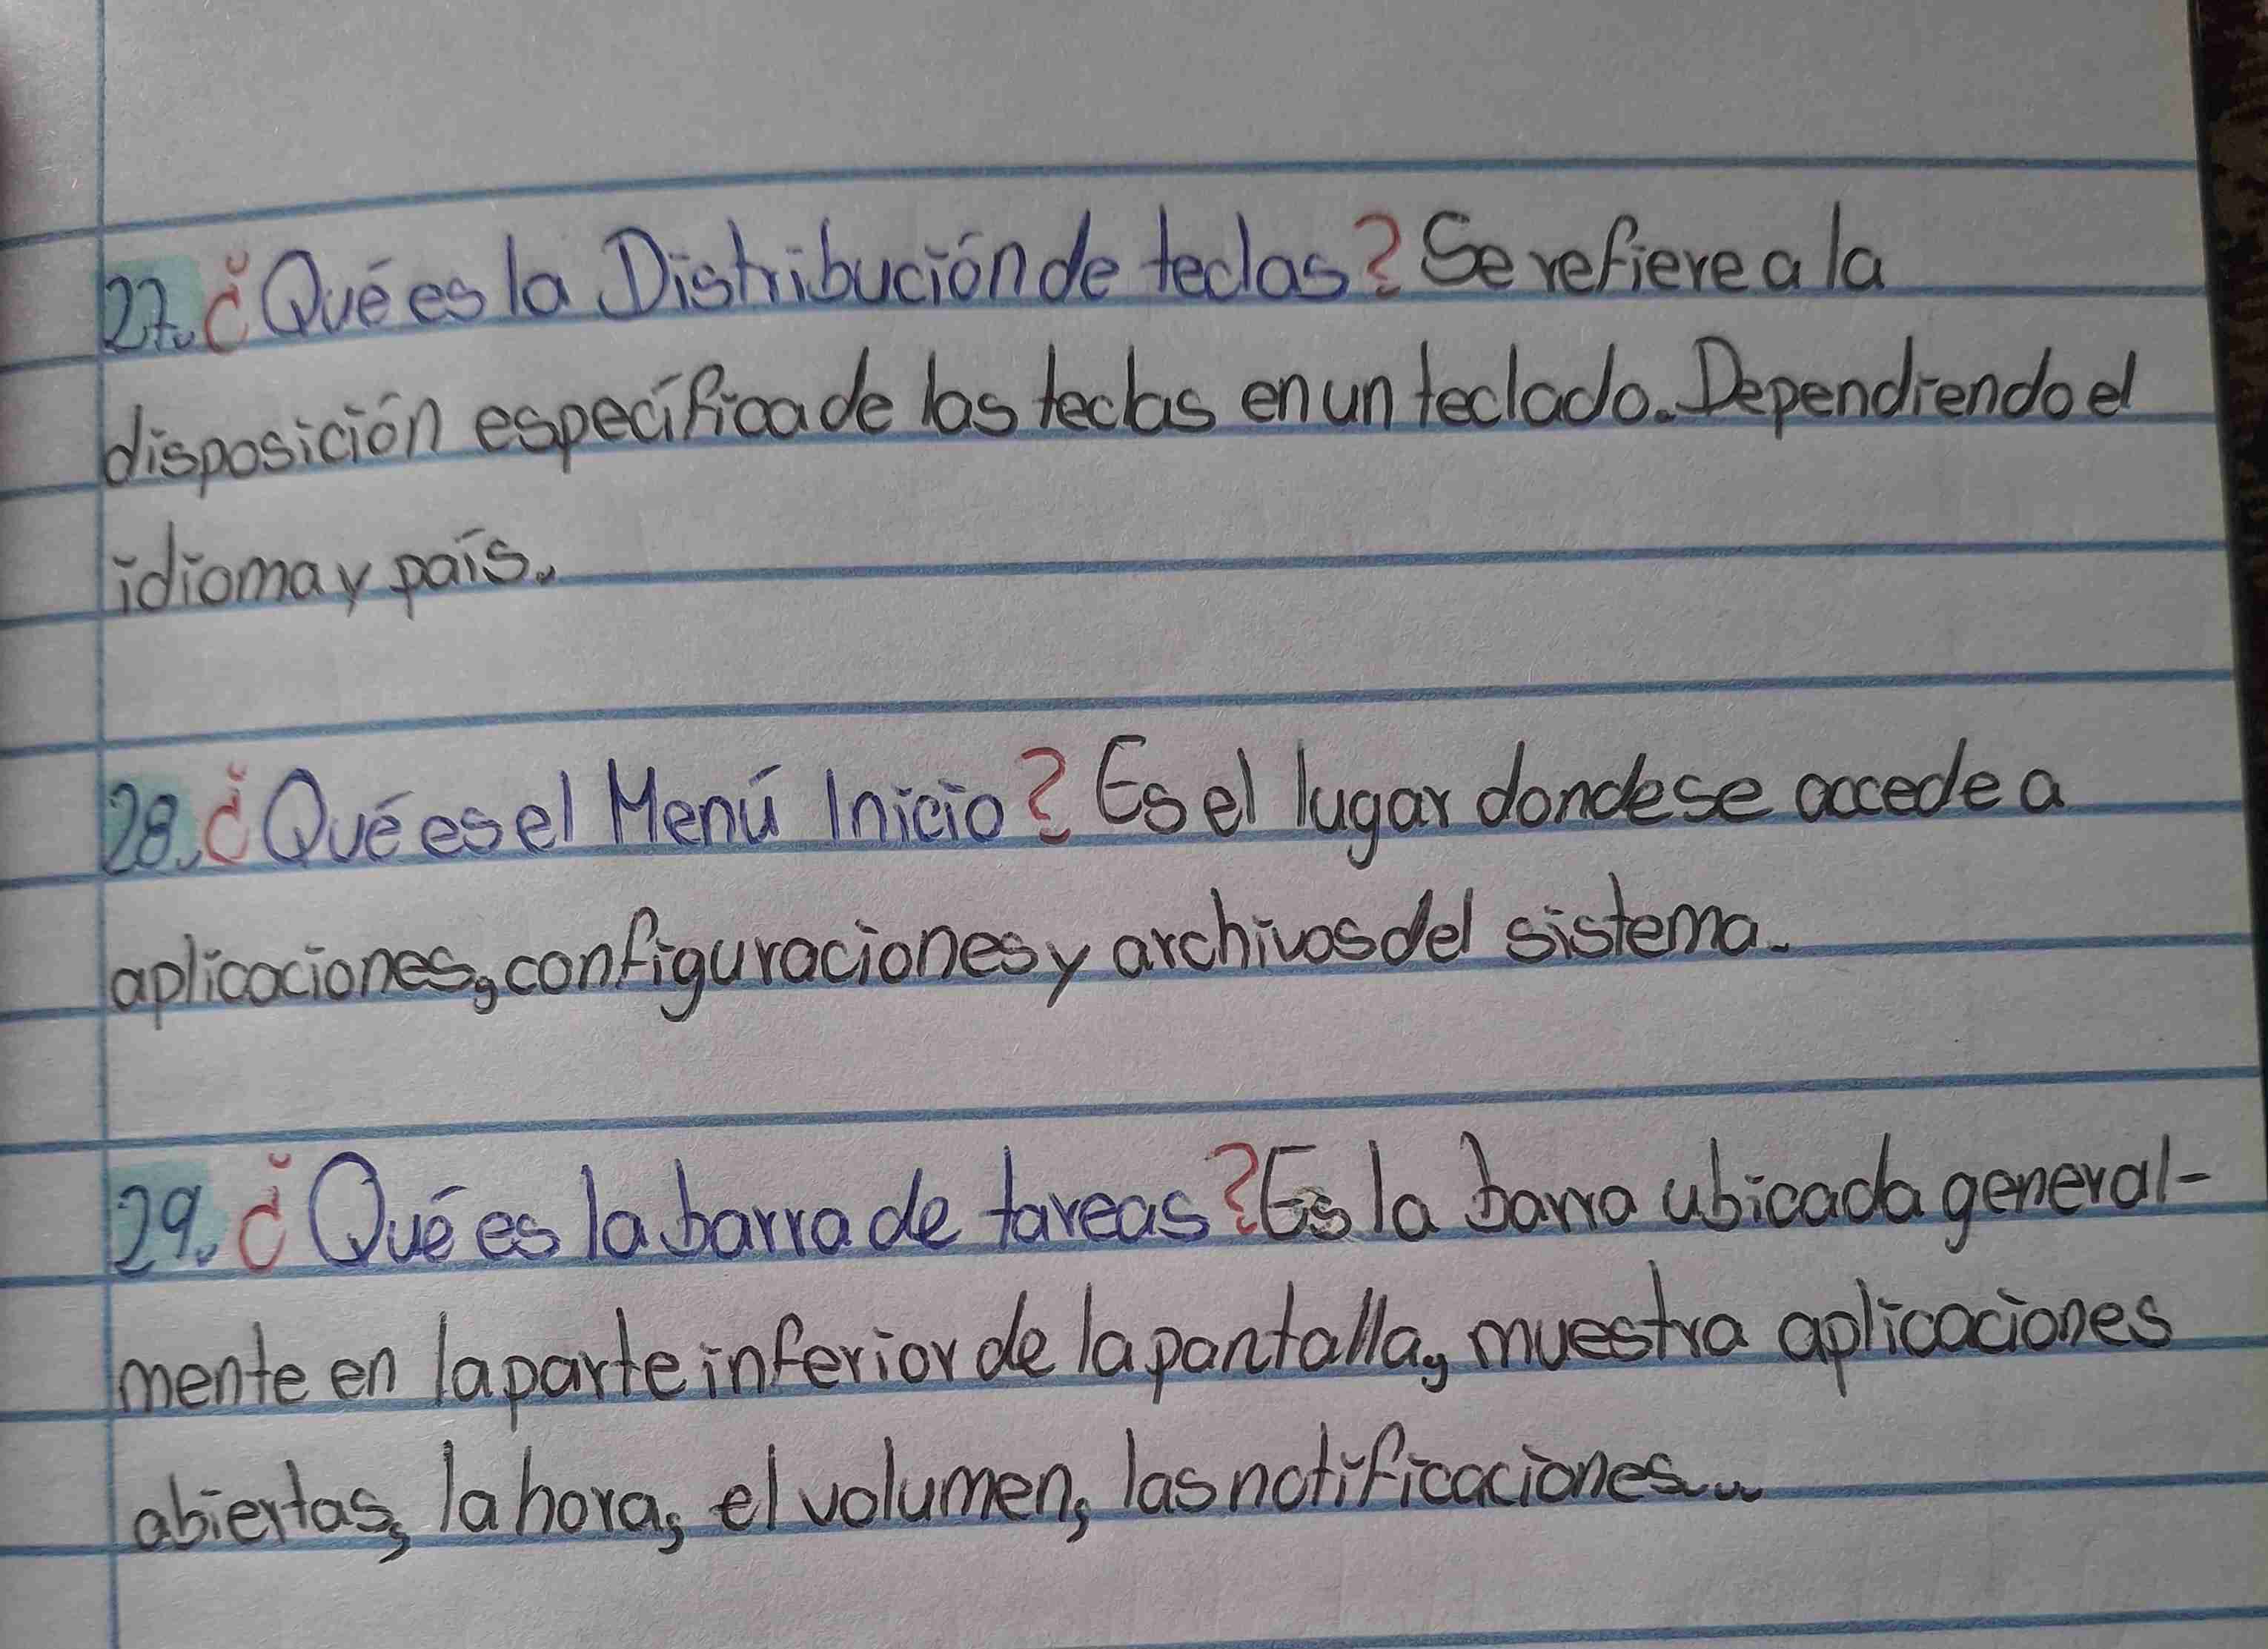 27. ¿Qué es la Distribución de teclas? Se refiere a la
disposición específica de las teclas en un teclado. Dependiendo el
idioma y país.
28. ¿Qué es el Menú Inicio? Es el lugar donde se accede a
aplicaciones, configuraciones y archivos del sistema.
29. ¿Qué es la barra de tareas? Es la barra ubicada general-
mente en la parte inferior de la pantalla, muestra aplicaciones
abiertas, la hora, el volumen, las notificaciones...